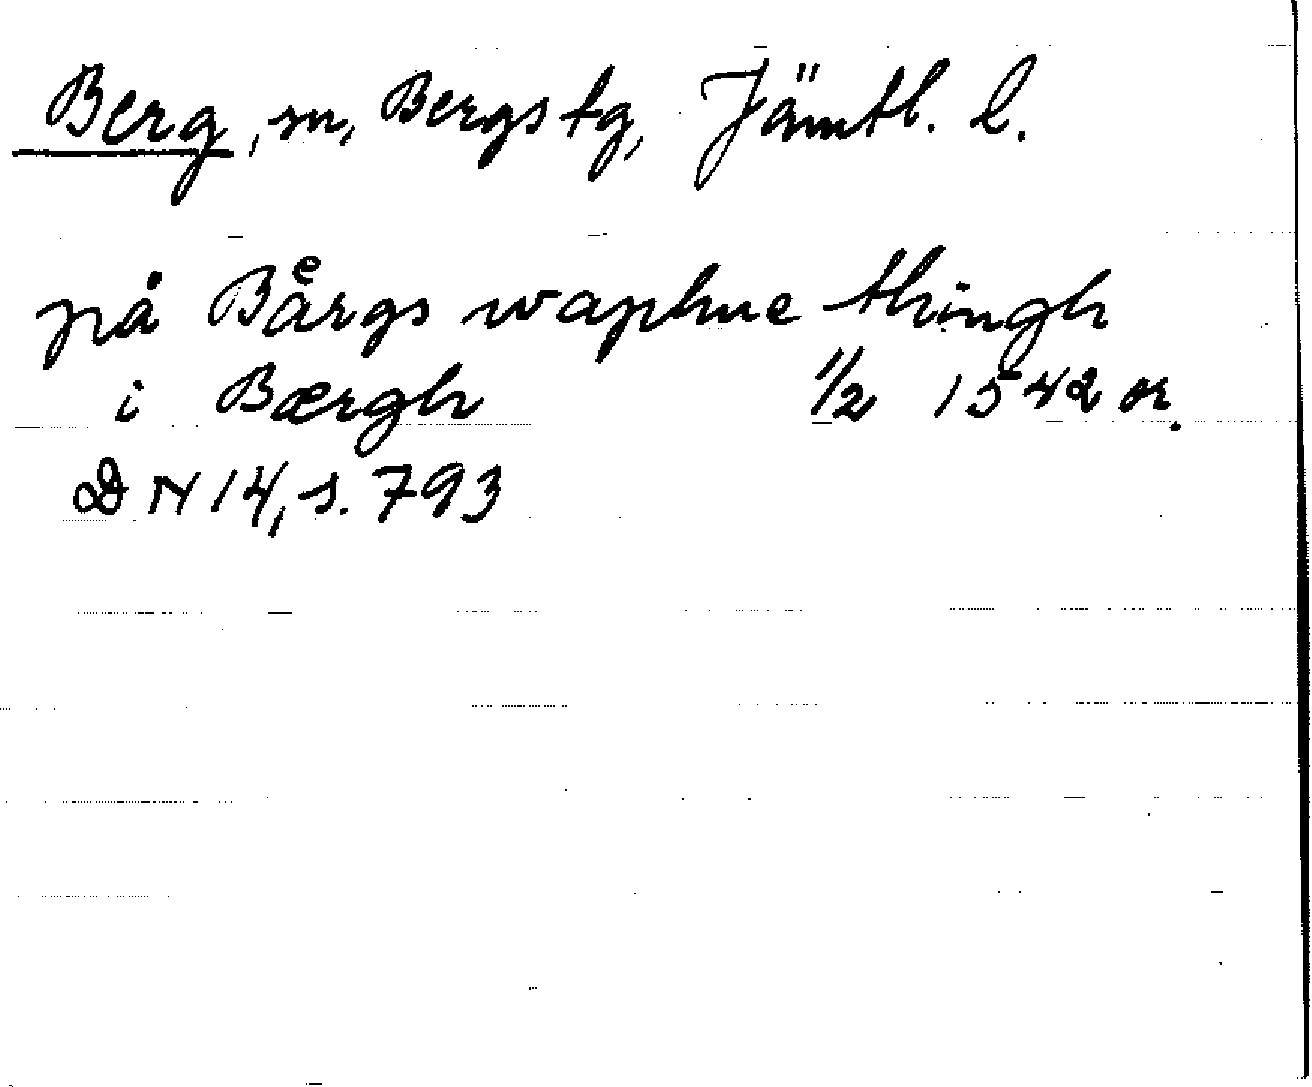 Berg, sn, Bergs tg, Jämtl. l.
på Baͤrgs waphne thingh
i Bærgh 1/2 1542 or.
DN 14, s. 793